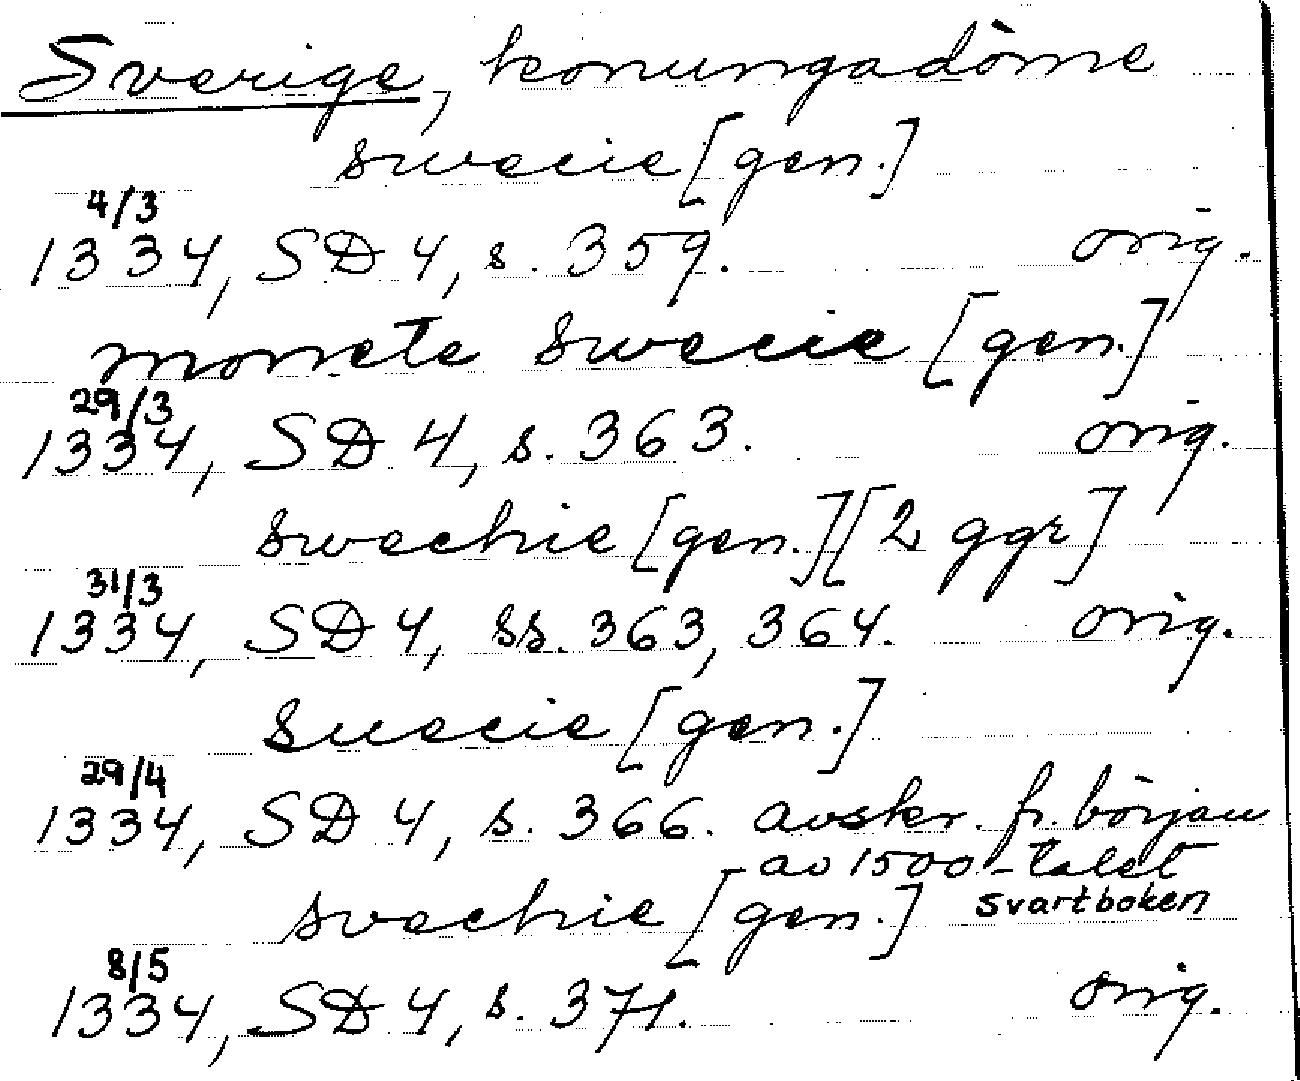 Sverige, konungadöme
swecie [gen.]
4/3
1334, SD 4, s. 359. orig.
monete Swecie [gen.]
29/3
1334, SD 4, s. 363. orig.
swechie [gen.] [2 ggr]
31/3
1334, SD 4, ss. 363, 364. orig.
Suecie [gen.]
29/4
1334, SD 4, s. 366. avskr. fr. början
av 1500-talet
svechie [gen.] Svartboken
8/5
1334, SD 4, s. 371. orig.